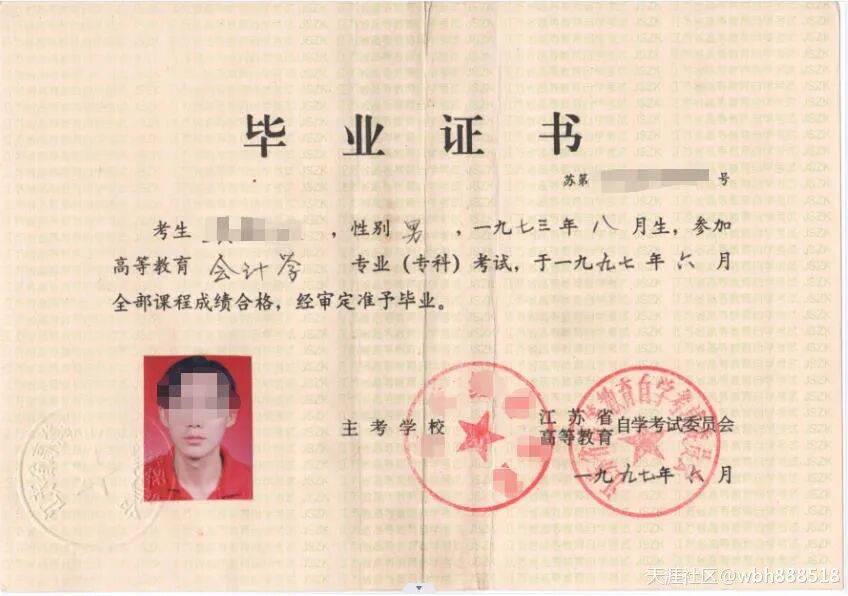 毕业证书
苏第 号
考生 ，性别男，一九七三年八月生，参加
高等教育会计学专业（专科）考试，于一九九七年六月
全部课程成绩合格，经审定准予毕业。
主考学校
江苏省
高等教育
自学考试委员会
一九九七年六月
天涯社区@wbh888518